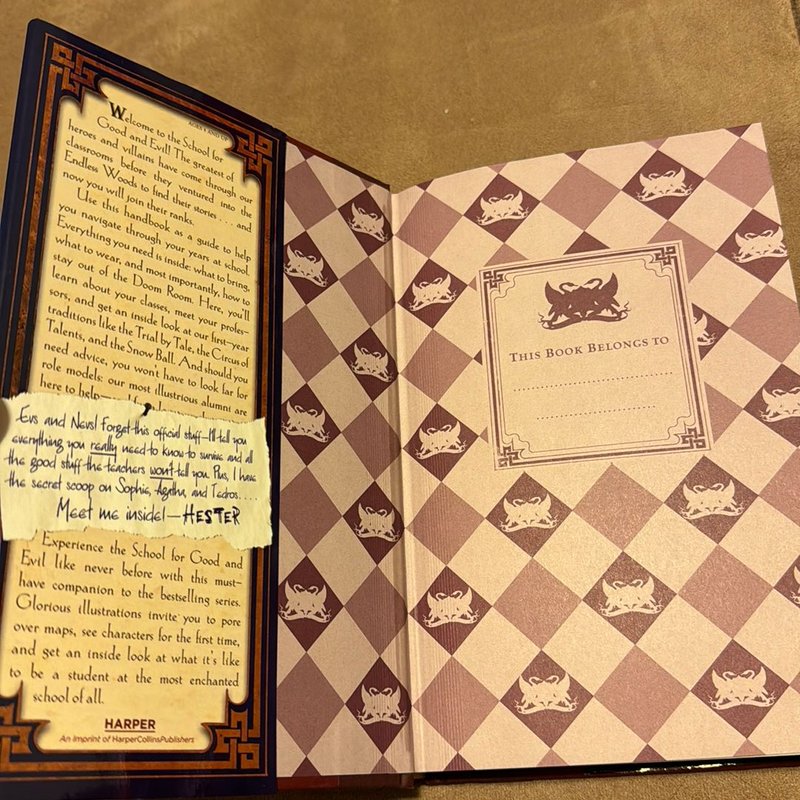 AGES 8 AND UP
Welcome to the School for
Good and Evil! The greatest of
heroes and villains have come through our
classrooms before they ventured into the
Endless Woods to find their stories . . . and
now you will join their ranks.
Use this handbook as a guide to help
you navigate through your years at school.
Everything you need is inside: what to bring,
what to wear, and most importantly, how to
stay out of the Doom Room. Here, you'll
learn about your classes, meet your profes-
sors, and get an inside look at our first-year
traditions like the Trial by Tale, the Circus of
Talents, and the Snow Ball. And should you
need advice, you won't have to look far for
role models: our most illustrious alumni are
here to help—
Evs and Nevs! Forget this official stuff—I'll tell you
everything you really need to know to survive and all
the good stuff the teachers won't tell you. Plus, I have
the secret scoop on Sophie, Agatha, and Tedros. . . .
Meet me inside!—HESTER
Experience the School for Good and
Evil like never before with this must-
have companion to the bestselling series.
Glorious illustrations invite you to pore
over maps, see characters for the first time,
and get an inside look at what it's like
to be a student at the most enchanted
school of all.
HARPER
An Imprint of HarperCollinsPublishers
THIS BOOK BELONGS TO